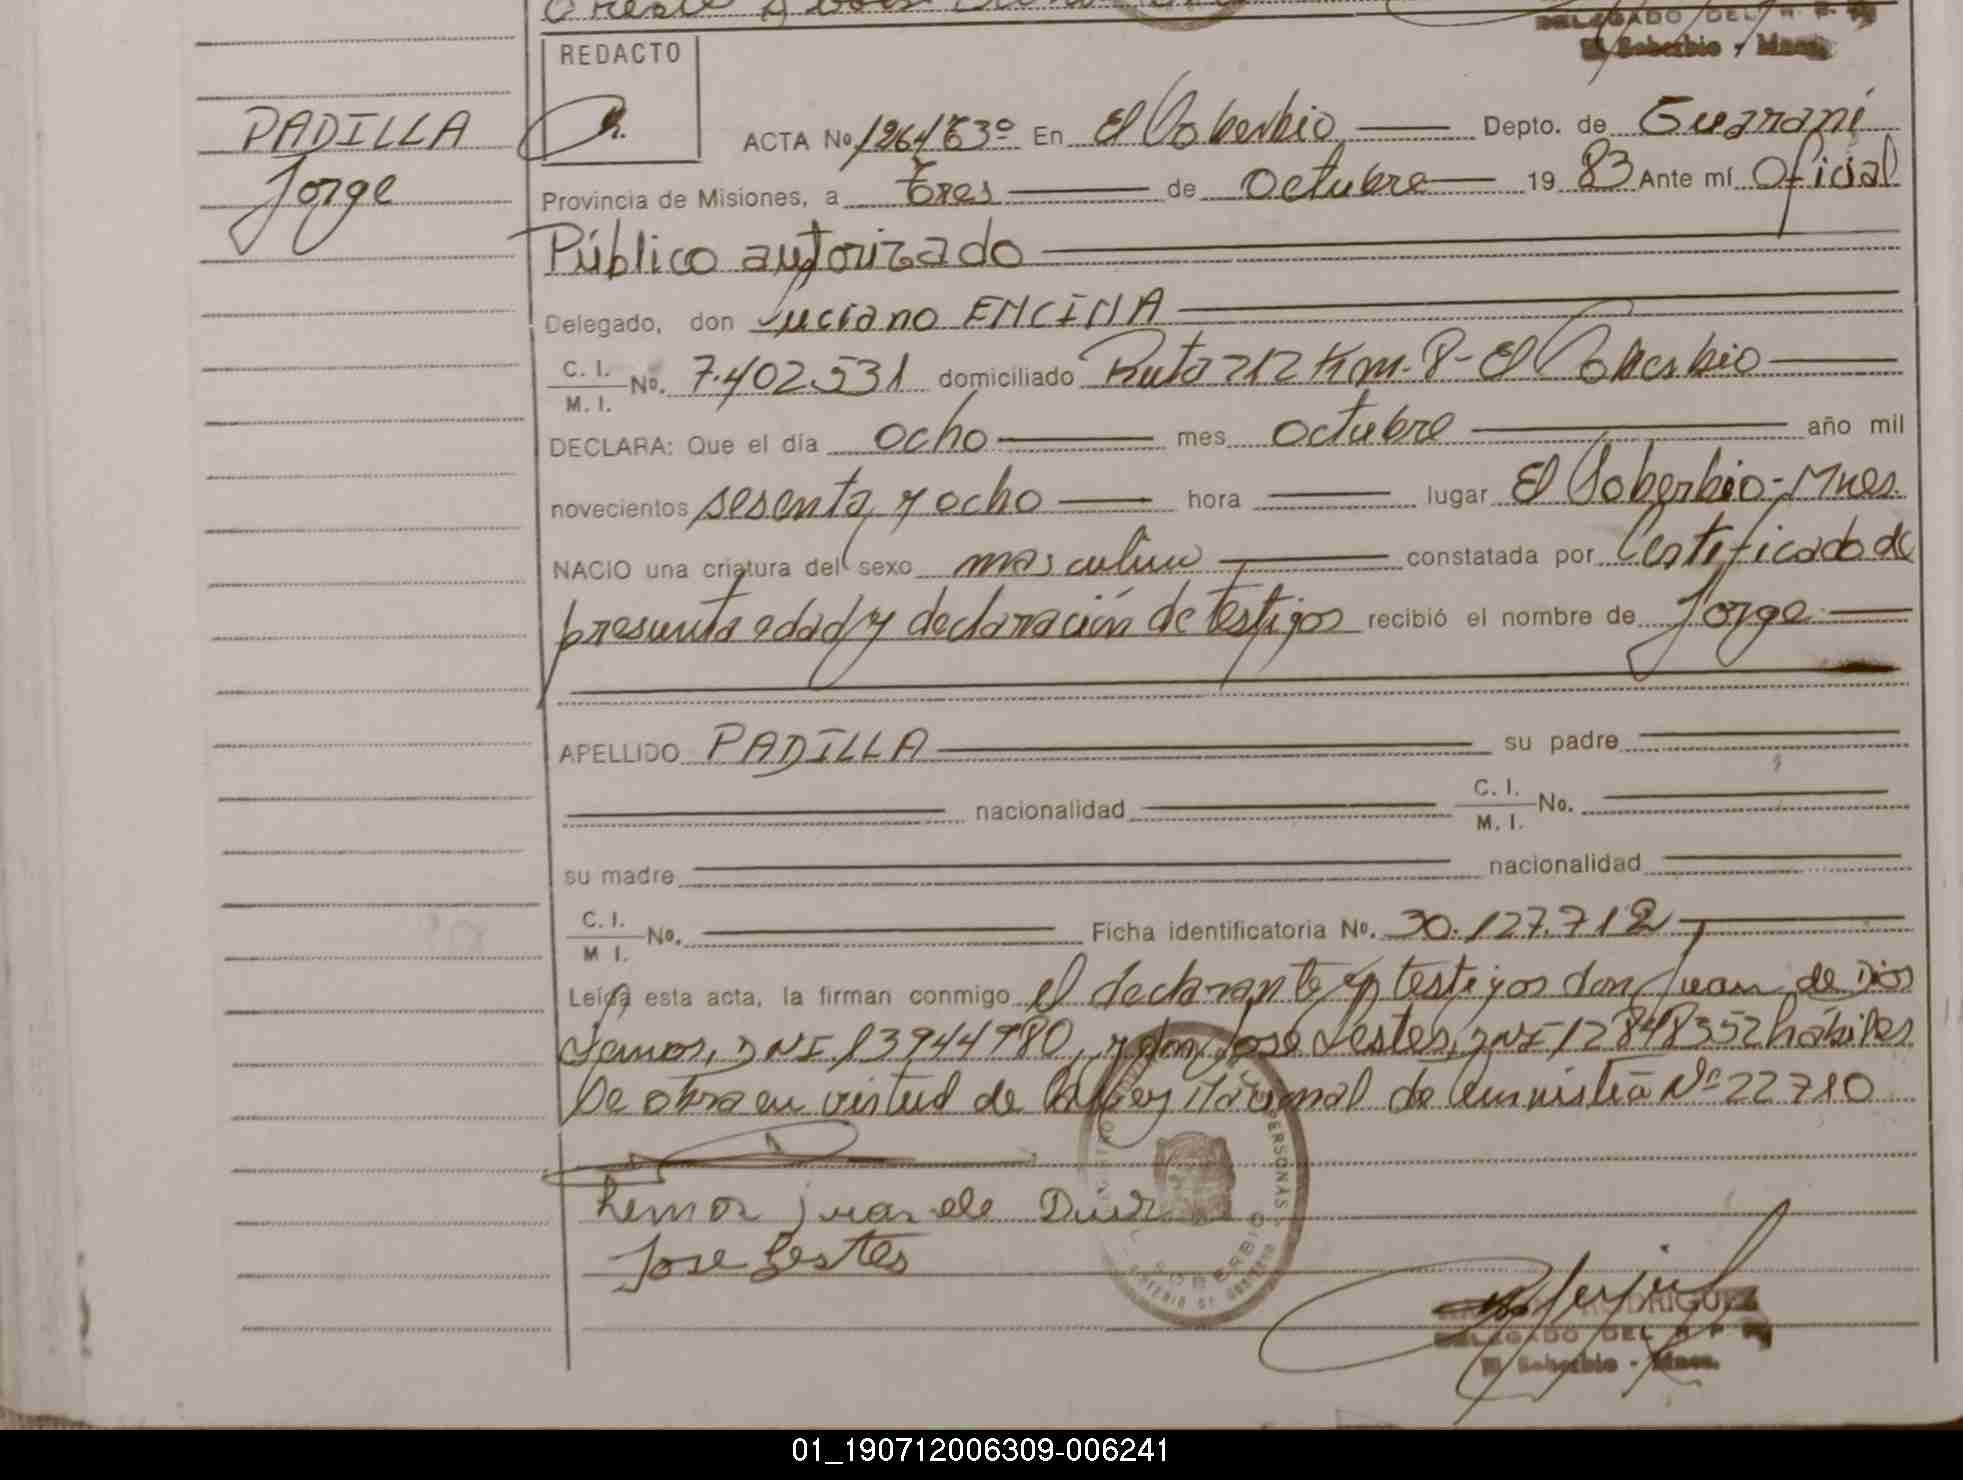 DELEGADO DEL R. P. P.
El Soberbio - Mnes.
REDACTO
PADILLA
Jorge
ACTA No 1264 T3º En El Soberbio Depto. de Guaraní
Provincia de Misiones, a tres de Octubre 19 83 Ante mí Oficial
Público autorizado
Delegado, don Luciano ENCINA
C. I.
M. I. No. 7.402.531 domiciliado Ruta 212 Km. 8 - El Soberbio
DECLARA: Que el día ocho mes octubre año mil
novecientos sesenta y ocho hora lugar El Soberbio - Mnes.
NACIO una criatura del sexo masculino constatada por Certificado de
presunta edad y declaración de testigos recibió el nombre de Jorge
APELLIDO PADILLA su padre
nacionalidad C. I.
M. I. No.
su madre nacionalidad
C. I.
M I. No. Ficha identificatoria No. 30.127.712
Leída esta acta, la firman conmigo el declarante y testigos don Juan de Dios
Lemos, DNI 13944980, y don Jose Lestes, DNI 12848352 hábiles
Se obra en virtud de la Ley Nacional de Amnistía Nº 22710
Lemos Juan de Dios
Jose Lestes
PERSONAS
SOBERBIO
RODRIGUEZ
DELEGADO DEL R P P
El Soberbio - Mnes.
01_190712006309-006241